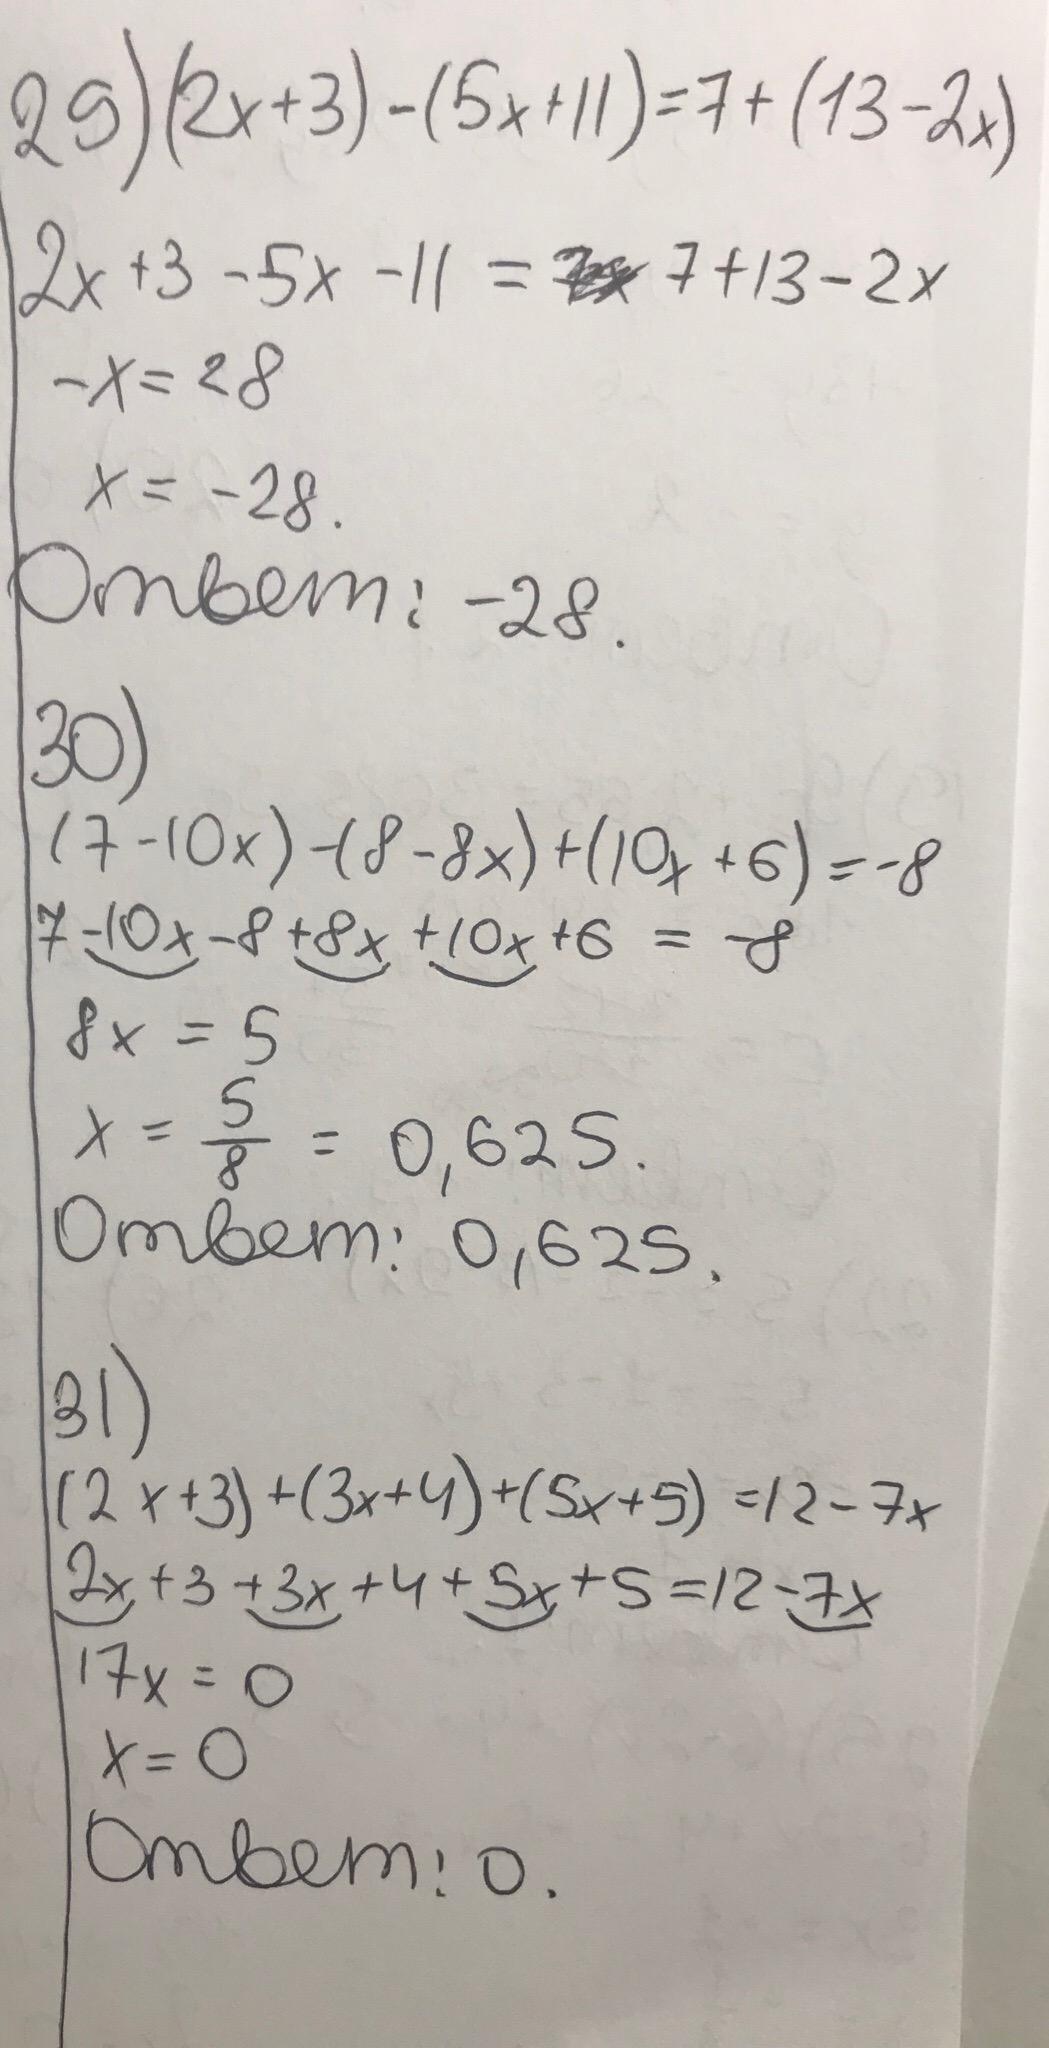 29) (2x+3) - (5x+11) = 7 + (13-2x)
2x +3 -5x -11 = 7+13-2x
-x = 28
x = -28.
Ответ: -28.
30)
(7-10x) -(8-8x) +(10x+6) = -8
7-10x-8+8x+10x+6 = -8
8x = 5
x = 5/8 = 0,625.
Ответ: 0,625.
31)
(2x+3)+(3x+4)+(5x+5) =12-7x
2x+3+3x+4+5x+5=12-7x
17x = 0
x = 0
Ответ: 0.